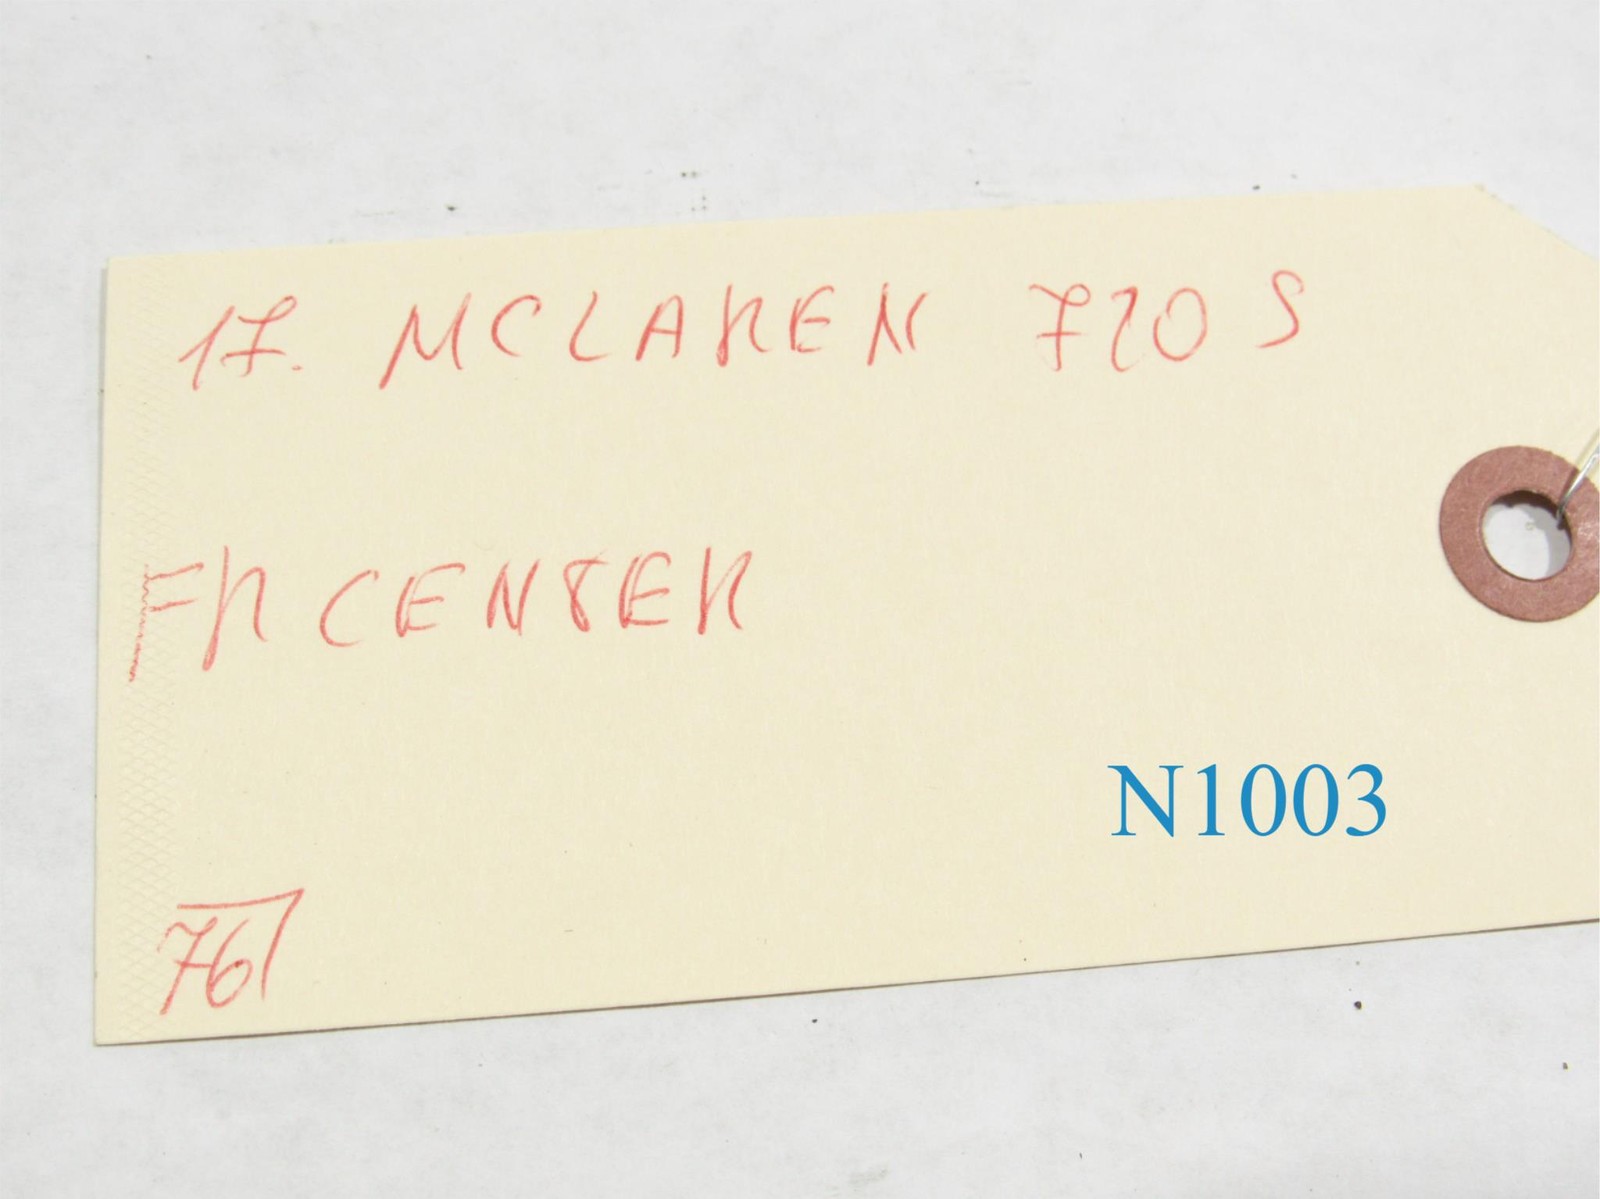 17. MCLAREN 720 S
FR CENTER
N1003
76